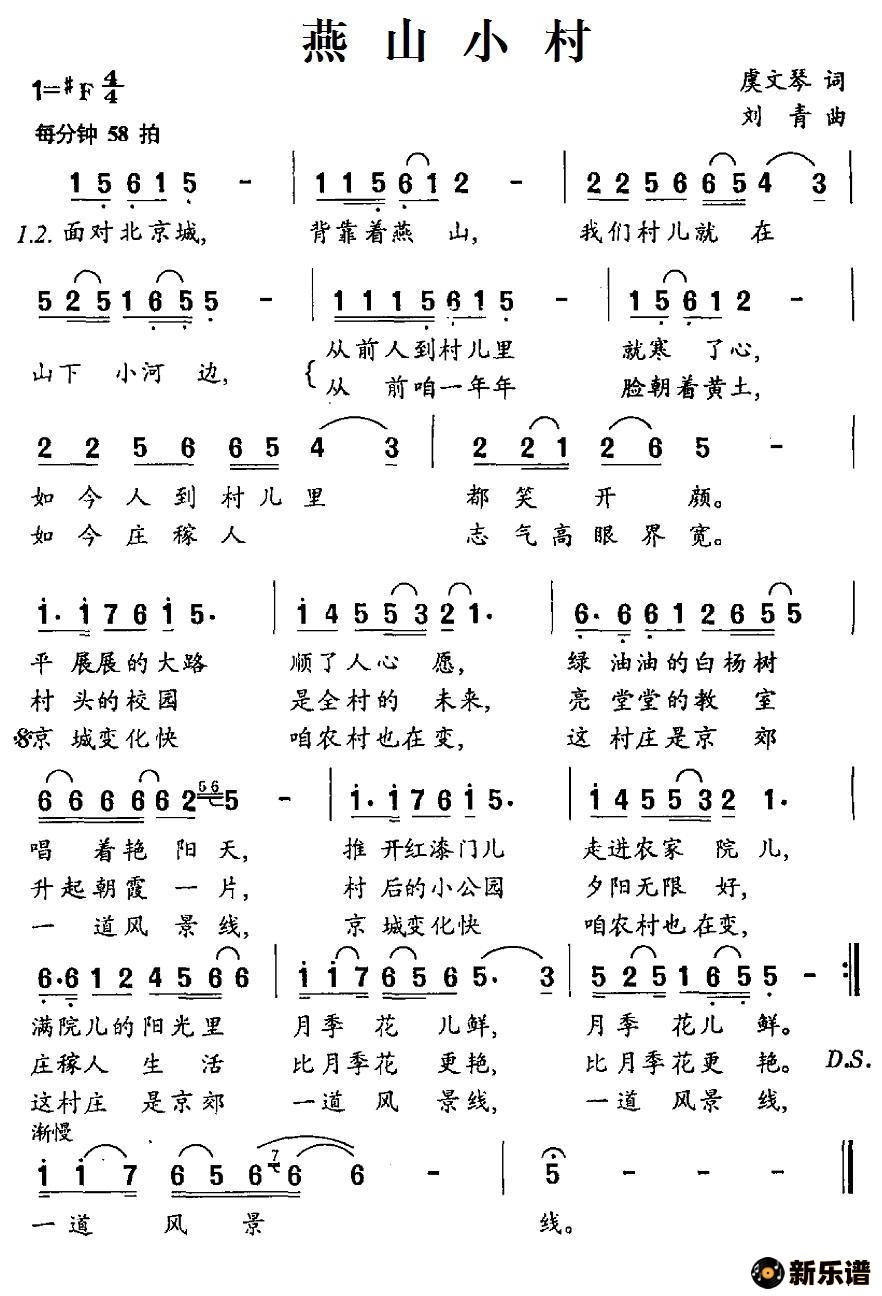 燕山小村
1=♯F 4/4
虞文琴 词
每分钟 58 拍
刘青 曲
1 5 6 1 5 - | 1 1 5 6 1 2 - | 2 2 5 6 6 5 4 3 |
1.2. 面对北京城, 背靠着燕山, 我们村儿就在
5 2 5 1 6 5 5 - | 1 1 1 5 6 1 5 - | 1 5 6 1 2 - |
山下小河边, { 从前人到村儿里 就寒了心,
从前咱一年年 脸朝着黄土,
2 2 5 6 6 5 4 3 | 2 2 1 2 6 5 -
如今人到村儿里 都笑开颜。
如今庄稼人 志气高眼界宽。
i· i 7 6 i 5· | i 4 5 5 3 2 1· | 6· 6 6 1 2 6 5 5 |
平展展的大路 顺了人心愿, 绿油油的白杨树
村头的校园 是全村的未来, 亮堂堂的教室
𝄋京城变化快 咱农村也在变, 这村庄是京郊
6 6 6 6 6 2 56 5 - | i· i 7 6 i 5· | i 4 5 5 3 2 1· |
唱着艳阳天, 推开红漆门儿 走进农家院儿,
升起朝霞一片, 村后的小公园 夕阳无限好,
一道风景线, 京城变化快 咱农村也在变,
6· 6 1 2 4 5 6 6 | i i 7 6 5 6 5 5· 3 | 5 2 5 1 6 5 5 - :‖
满院儿的阳光里 月季花儿鲜, 月季花儿鲜。
庄稼人生活 比月季花更艳, 比月季花更艳。 D.S.
这村庄是京郊 一道风景线, 一道风景线,
渐慢
i i 7 6 5 6 7 6 6 - | 5 - - - ‖
一道风景线。
新乐谱